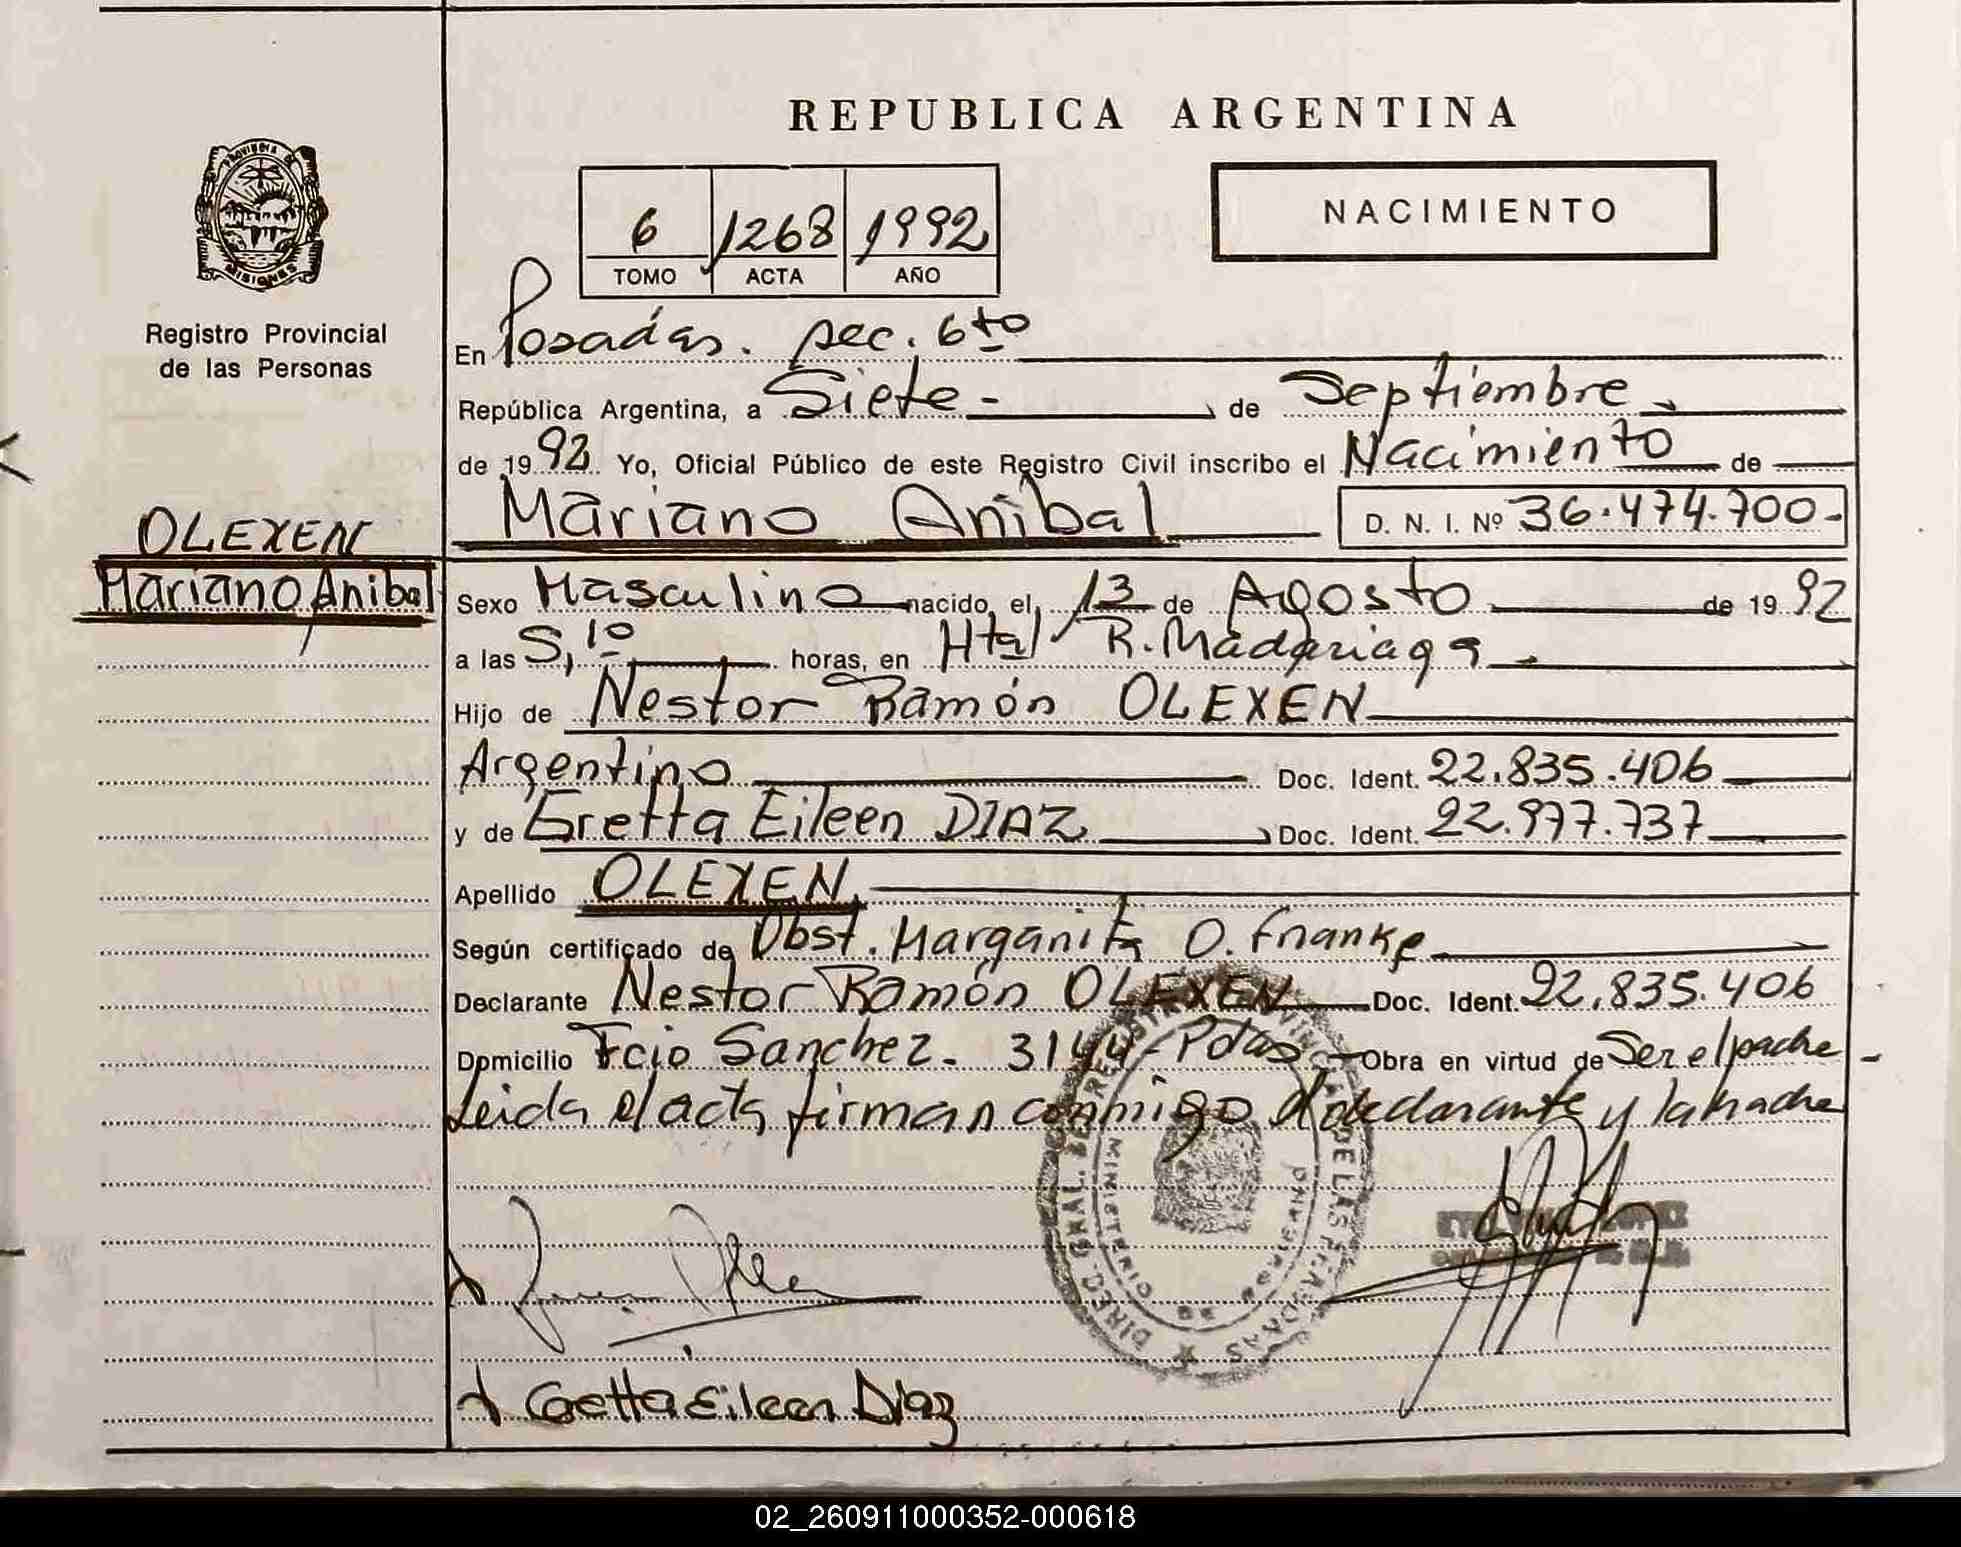 REPUBLICA ARGENTINA
PROVINCIA DE
MISIONES
Registro Provincial
de las Personas
6 1268 1992
TOMO ACTA AÑO
NACIMIENTO
En Posadas. sec. 6to
República Argentina, a Siete - de Septiembre
de 1992 Yo, Oficial Público de este Registro Civil inscribo el Nacimiento de
OLEXEN
Mariano Anibal
Mariano Anibal D. N. I. Nº 36.474.700-
Sexo Masculino nacido, el, 13 de Agosto de 1992
a las 5,10 horas, en Htal R. Madariaga
Hijo de Nestor Ramón OLEXEN
Argentino Doc. Ident. 22.835.406
y de Gretta Eileen DIAZ Doc. Ident. 22.977.737
Apellido OLEXEN
Según certificado de Obst. Margarita O. Franke
Declarante Nestor Ramón OLEXEN Doc. Ident. 22.835.406
Domicilio Fcio Sanchez. 3144 - Pdas Obra en virtud de Ser el padre -
Leida el acta firman conmigo el declarante y la madre
Gretta Eileen Diaz
02_260911000352-000618